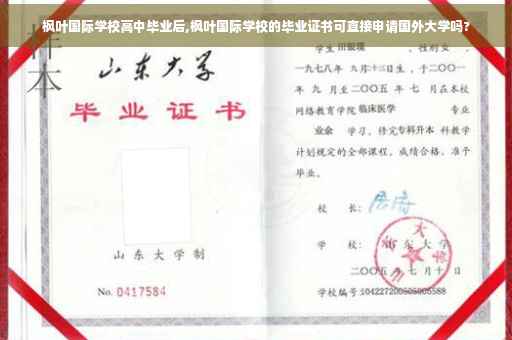 枫叶国际学校高中毕业后,枫叶国际学校的毕业证书可直接申请国外大学吗?
样本
山东大学
毕业证书
山东大学制
No. 0417584
学生
性别女
一九七八年 九月十三日生，于二〇〇一
年 九 月至二〇〇五 年 七 月在本校
网络教育学院 临床医学 专业
业余 学习，修完专科升本 科教学
计划规定的全部课程，成绩合格，准予
毕业。
校 长：
学 校： 山东大学
二〇〇五 年 七 月 十 日
学校编号: